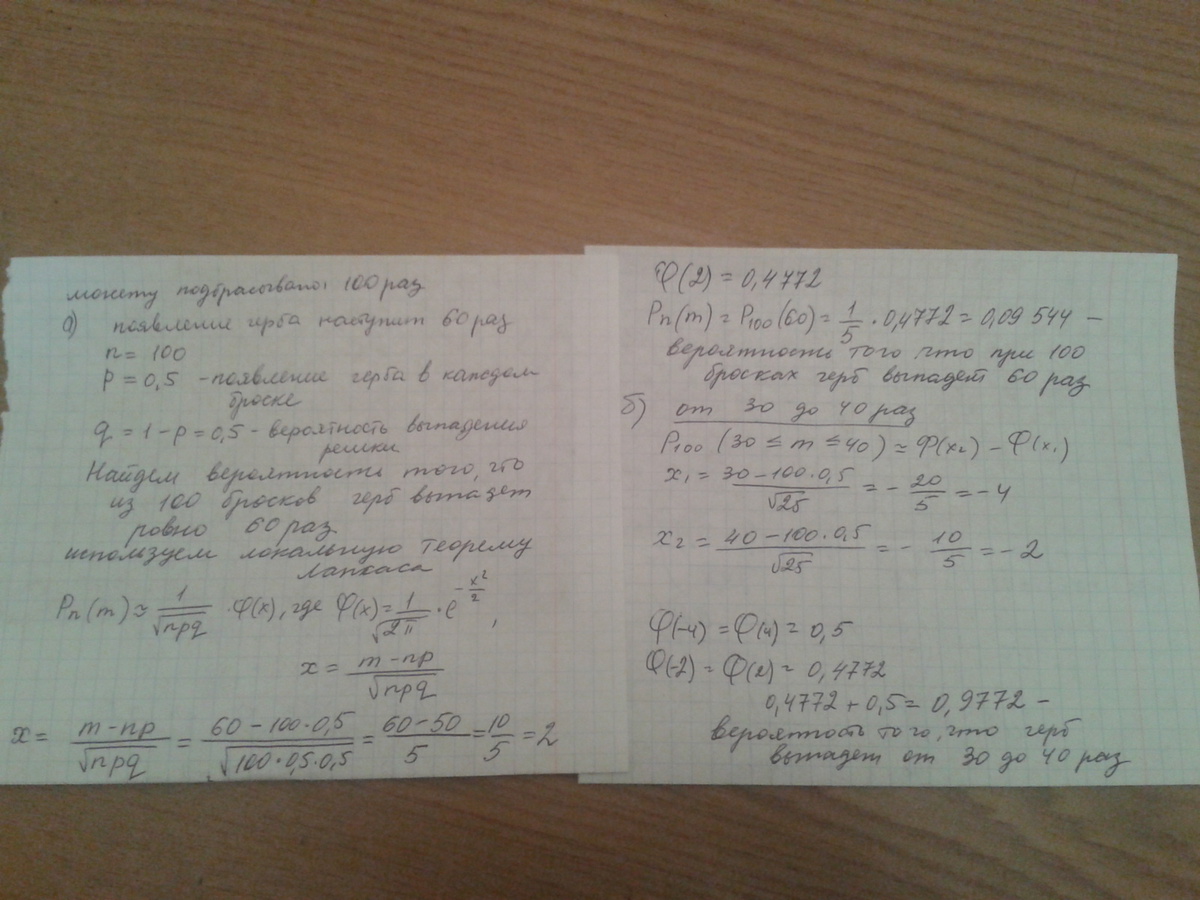 монету подбрасывают 100 раз
а) появление герба наступит 60 раз
n = 100
p = 0,5 - появление герба в каждом
броске
q = 1 - p = 0,5 - вероятность выпадения
решки
Найдем вероятность того, что
из 100 бросков герб выпадет
ровно 60 раз
используем локальную теорему
Лапласа
Pn(m) ≈ 1/√npq · φ(x), где φ(x) = 1/√2π · e^(-x²/2),
x = (m - np)/√npq
x = (m - np)/√npq = (60 - 100·0,5)/√100·0,5·0,5 = (60 - 50)/5 = 10/5 = 2
φ(2) = 0,4772
Pn(m) = P100(60) = 1/5 · 0,4772 = 0,09544 -
вероятность того, что при 100
бросках герб выпадет 60 раз
б) от 30 до 40 раз
P100 (30 ≤ m ≤ 40) ≈ Ф(x2) - Ф(x1)
x1 = (30 - 100·0,5)/√25 = - 20/5 = -4
x2 = (40 - 100·0,5)/√25 = - 10/5 = -2
φ(-4) = φ(4) = 0,5
φ(-2) = φ(2) = 0,4772
0,4772 + 0,5 = 0,9772 -
вероятность того, что герб
выпадет от 30 до 40 раз